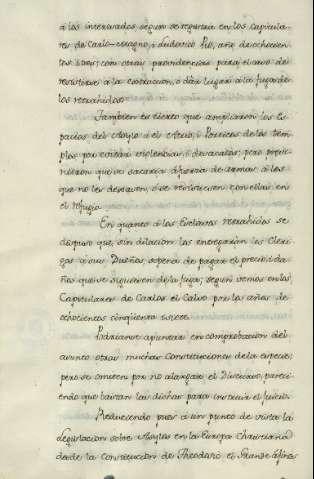 á los interesados segun se registra en los Capitula-
res de Carlo-magno, i Ludovico Pio, año de ochocien
tos i diez; con otras providencias para el caso de
resistirse á la extraccion, ó dár lugar á la fuga de
los retrahidos.
Tambien es cierto que ampliaron los Es-
pacios del Asylo á el Atrio, i Porticos de los tem
plos por evitár violencias, i desacatos; pero permi-
tieron que se sacaria á fuerza de armas á los
que no les dexaven, ó se resistiesen con ellas en
el refugio.
En quanto á los Esclavos retrahidos se
dispuso que, sin dilacion los entregasen los Cleri-
gos á sus Dueños sopena de pagar el precio, i da
ños que se siguiesen de la fuga; segun vemos en las
Capitulares de Carlos el Calvo por los años de
ochocientos cinquenta i siete.
Pudieranse apuntar en comprobacion del
asunto otras muchas Constituciones de la especie;
pero se omiten por no alargar el Discurso, parecie
ndo que bastan las dichas para instruir el juicio.
Reduciendo pues á un punto de vista la
Legislacion sobre Asylos en la Europa Christiana
desde la Constitucion de Theodosio el Grande á fines